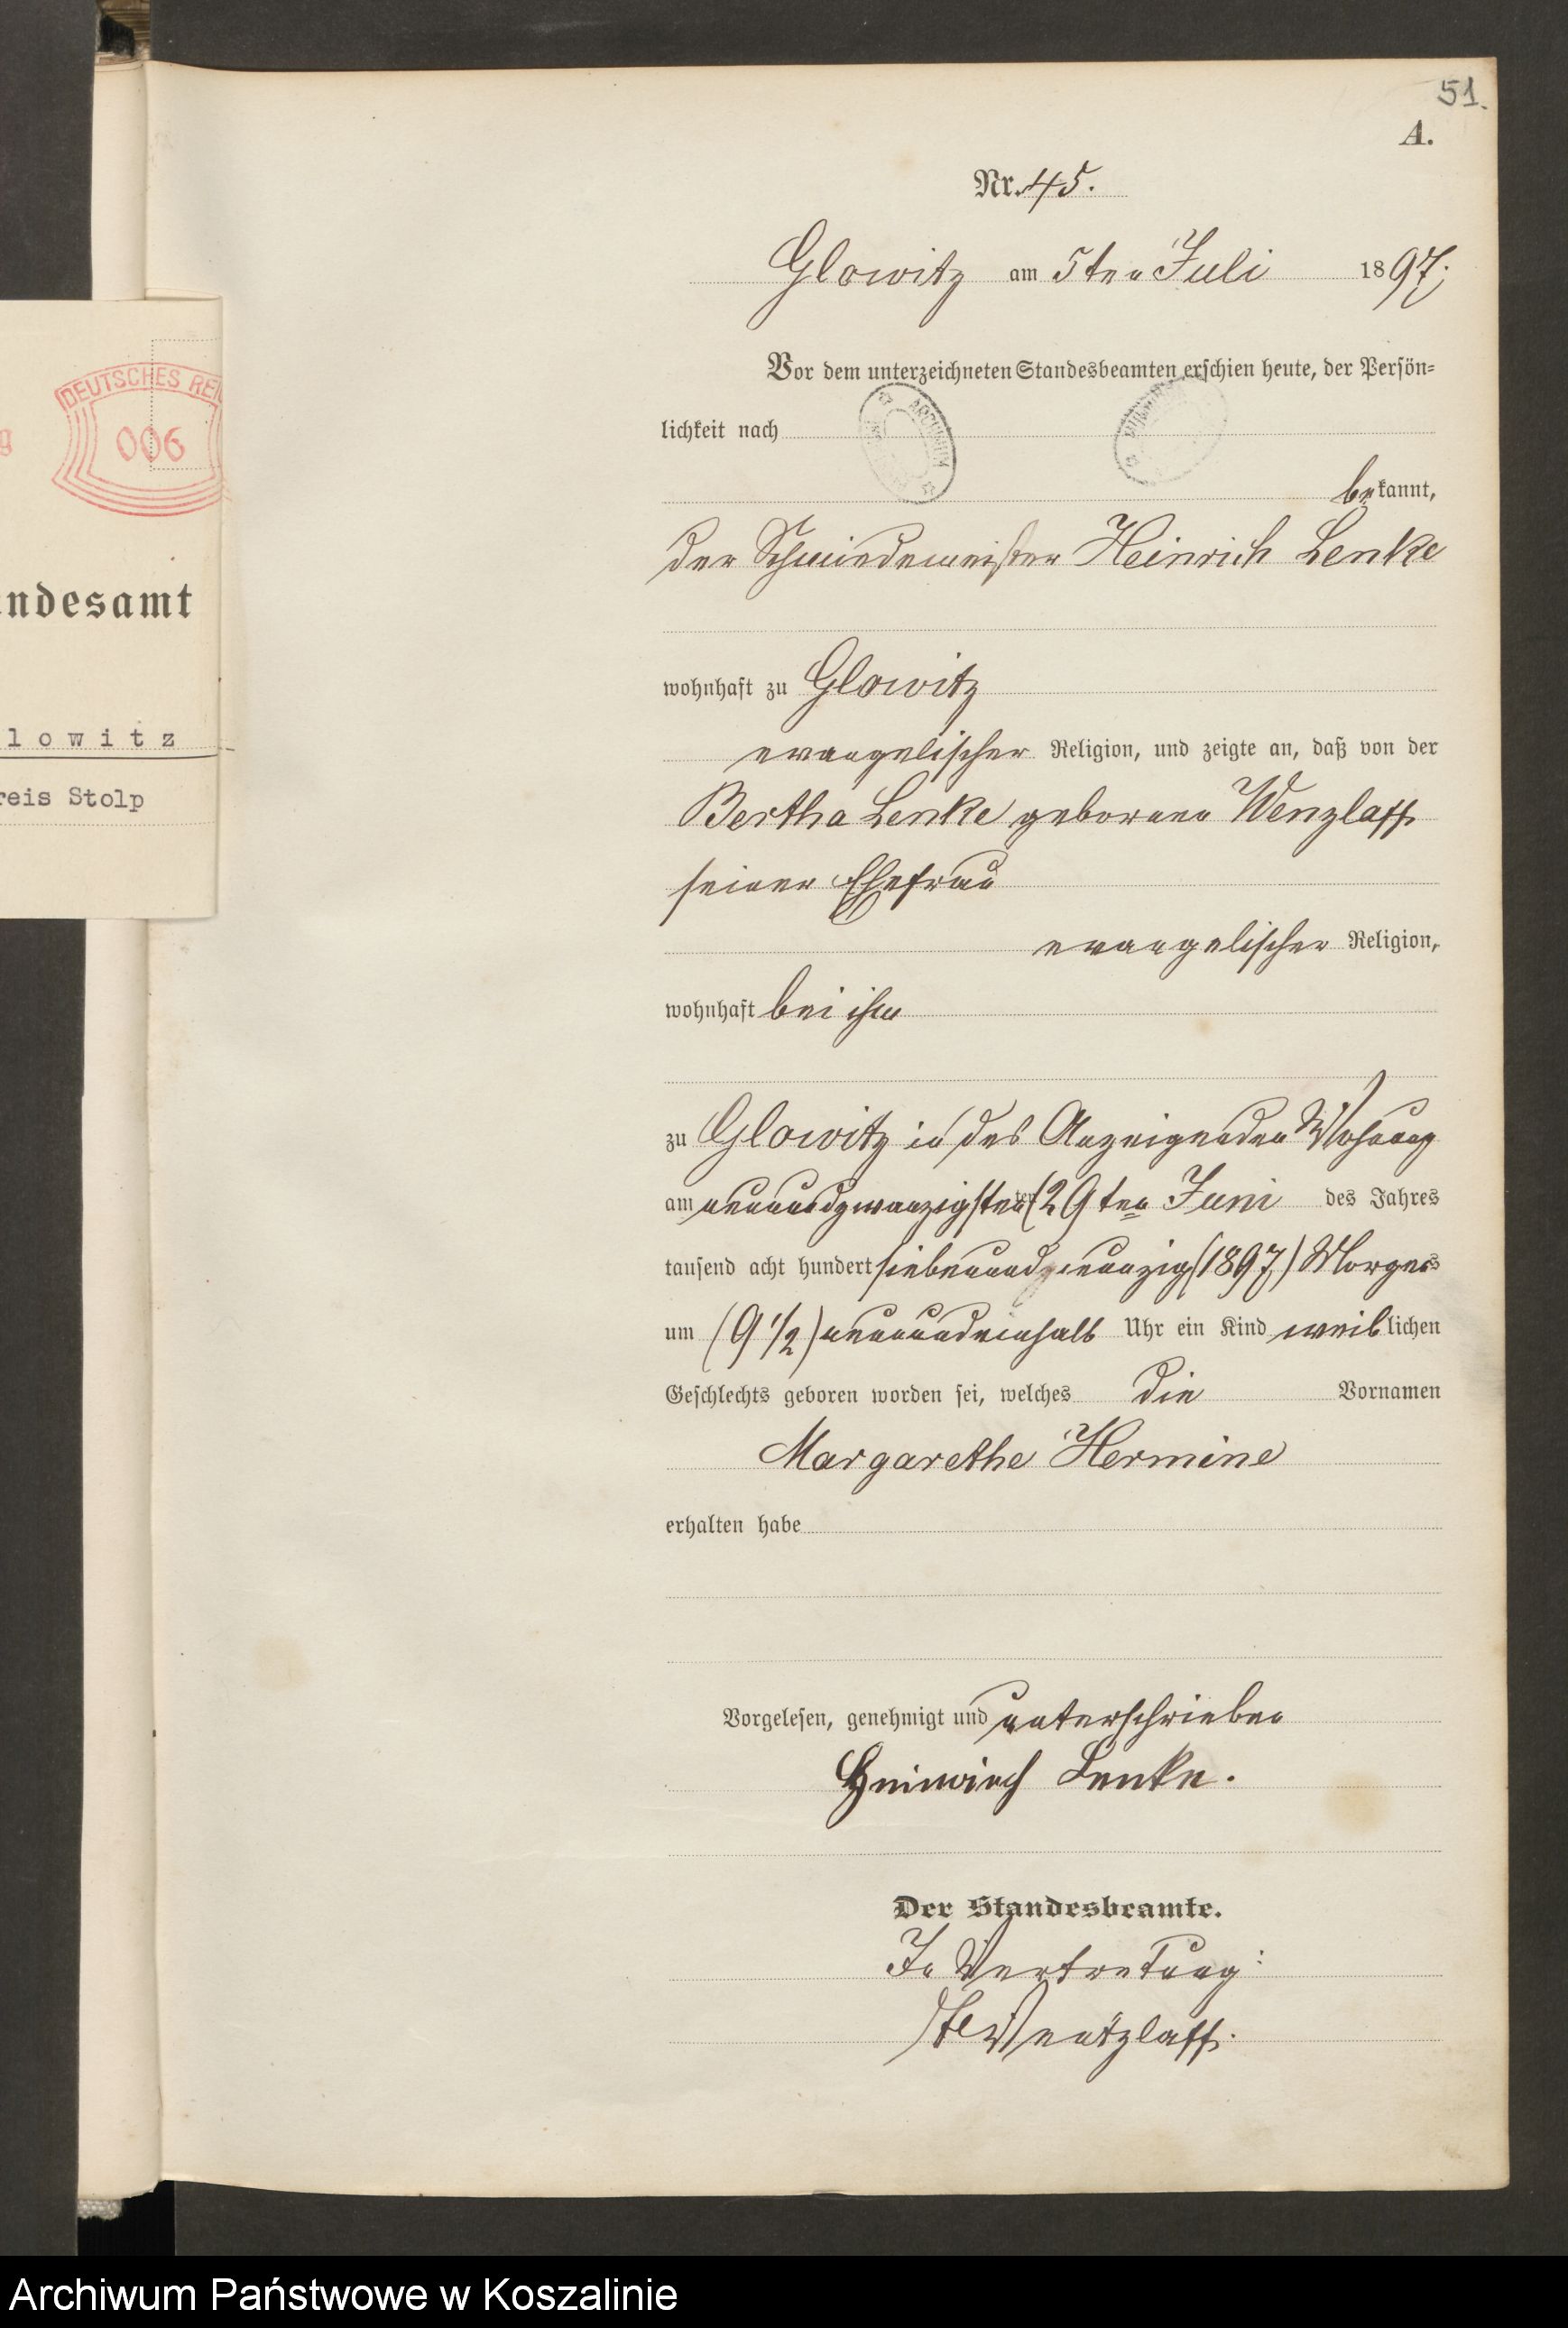 51.
A.
Nr. 45.
Glowitz am 5ten Juli 1897.
Vor dem unterzeichneten Standesbeamten erschien heute, der Persön-
lichkeit nach
bekannt,
der Schmiedemeister Heinrich Lenke
wohnhaft zu Glowitz
evangelischer Religion, und zeigte an, daß von der
Bertha Lenke geborenen Wenzlaff
seiner Ehefrau
evangelischer Religion,
wohnhaft bei ihm
zu Glowitz in des Anzeigenden Wohnung
am neunundzwanzigsten (29ten Juni des Jahres
tausend acht hundert siebenundneunzig (1897) Morgens
um (9 1/2) neunundeinhalb Uhr ein Kind weiblichen
Geschlechts geboren worden sei, welches die Vornamen
Margarethe Hermine
erhalten habe
Vorgelesen, genehmigt und unterschrieben
Heinrich Lenke.
Der Standesbeamte.
In Vertretung:
Wentzlaff.
DEUTSCHES REI
006
g
andesamt
lowitz
reis Stolp
ARCHIWUM
Archiwum Państwowe w Koszalinie